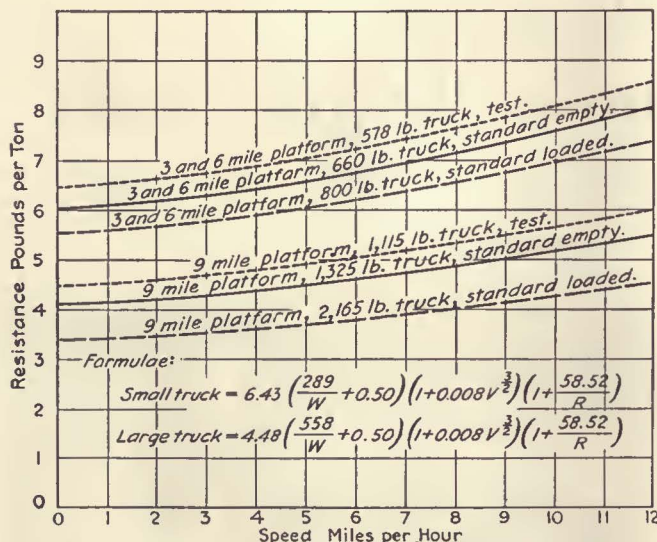 Resistance Pounds per Ton
9
8
7
6
5
4
3
2
1
0
3 and 6 mile platform, 578 lb. truck, test.
3 and 6 mile platform, 660 lb. truck, standard empty.
3 and 6 mile platform, 800 lb. truck, standard loaded.
9 mile platform, 1,115 lb. truck, test.
9 mile platform, 1,325 lb. truck, standard empty.
9 mile platfarm, 2,165 lb. truck, standard loaded.
Formulae:
Small truck = 6.43 (289/W + 0.50) (1 + 0.008 V^3/2) (1 + 58.52/R)
Large truck = 4.48 (558/W + 0.50) (1 + 0.008 V^3/2) (1 + 58.52/R)
0 1 2 3 4 5 6 7 8 9 10 11 12
Speed Miles per Hour